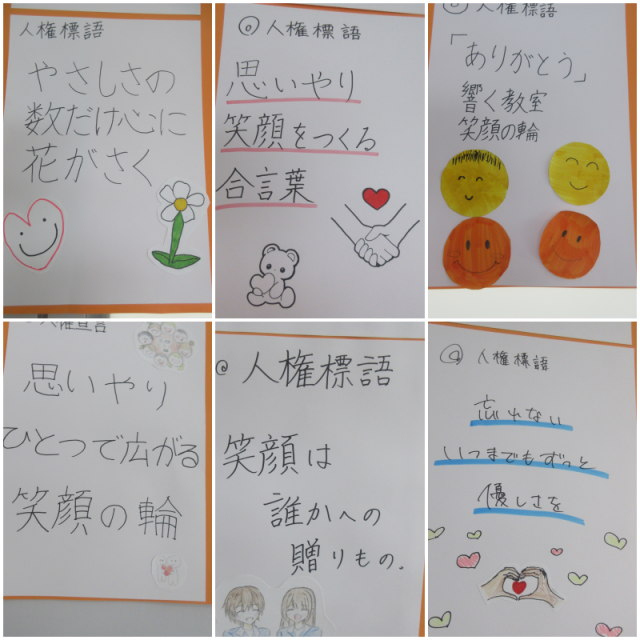 人権標語
やさしさの
数だけ心に
花がさく
人権標語
思いやり
笑顔をつくる
合言葉
人権標語
「ありがとう」
響く教室
笑顔の輪
人権宣言
思いやり
ひとつで広がる
笑顔の輪
人権標語
笑顔は
誰かへの
贈りもの。
人権標語
忘れない
いつまでもずっと
優しさを